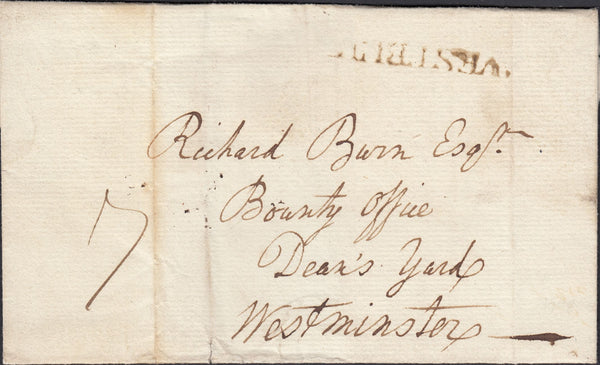 Richard Burn Esqr.
7 Bounty Office
Dean's Yard
Westminster